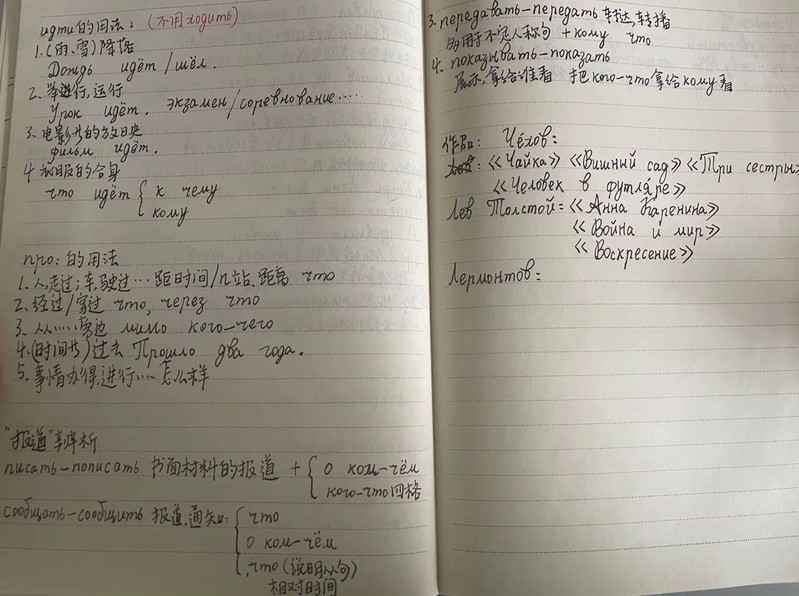 идти的用法: (不用ходить)
1.(雨、雪)降落
Дождь идёт/шёл.
2. 举进行,运行
Урок идёт. экзамен/соревнование....
3. 电影书的放日央
Фильм идёт.
4 衣服的合身
что идёт { к чему
кому
про: 的用法
1.人,走过;车,驶过…距时间/n站、距离 что
2.经过/穿过 что, через что
3. 从……旁边 мимо кого-чего
4.(时间书)过去 Прошло два года.
5.事情办得,进行…. 怎么样
"报道"辨析
писать-пописать 书面材料的报道 + { о ком-чём
кого-что 四格
сообщать-сообщить 报道,通知: { что
о ком-чём
,что (说明从句)
相对时间
3. передавать-передать 转达,转播
多用于不定人称句 +кому что
4. показывать-показать
展示,拿给谁看 把кого-что拿给кому看
作品: Чехов:
《Чайка》《Вишный сад》《Три сестры》
《Человек в футляре》
Лев Толстой:《Анна Каренина》
《Война и мир》
《Воскресение》
Лермонтов: